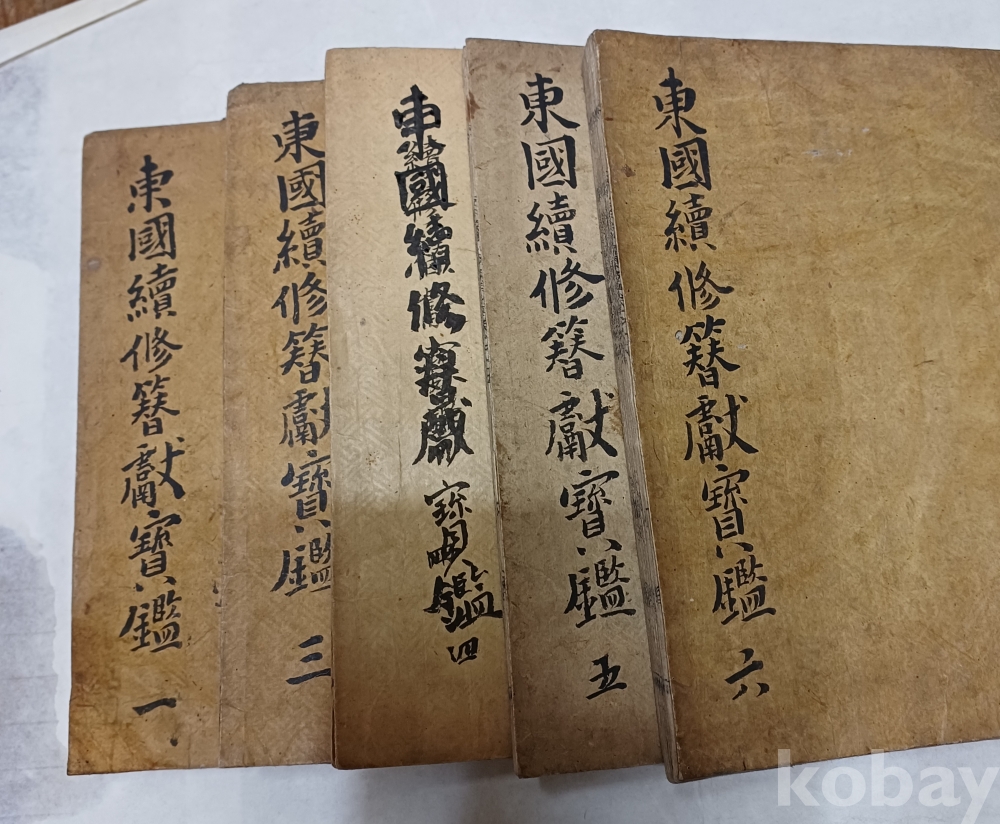 東國續修簪獻寶鑑 一
東國續修簪獻寶鑑 三
東國續修簪獻寶鑑 四
東國續修簪獻寶鑑 五
東國續修簪獻寶鑑 六
kobay